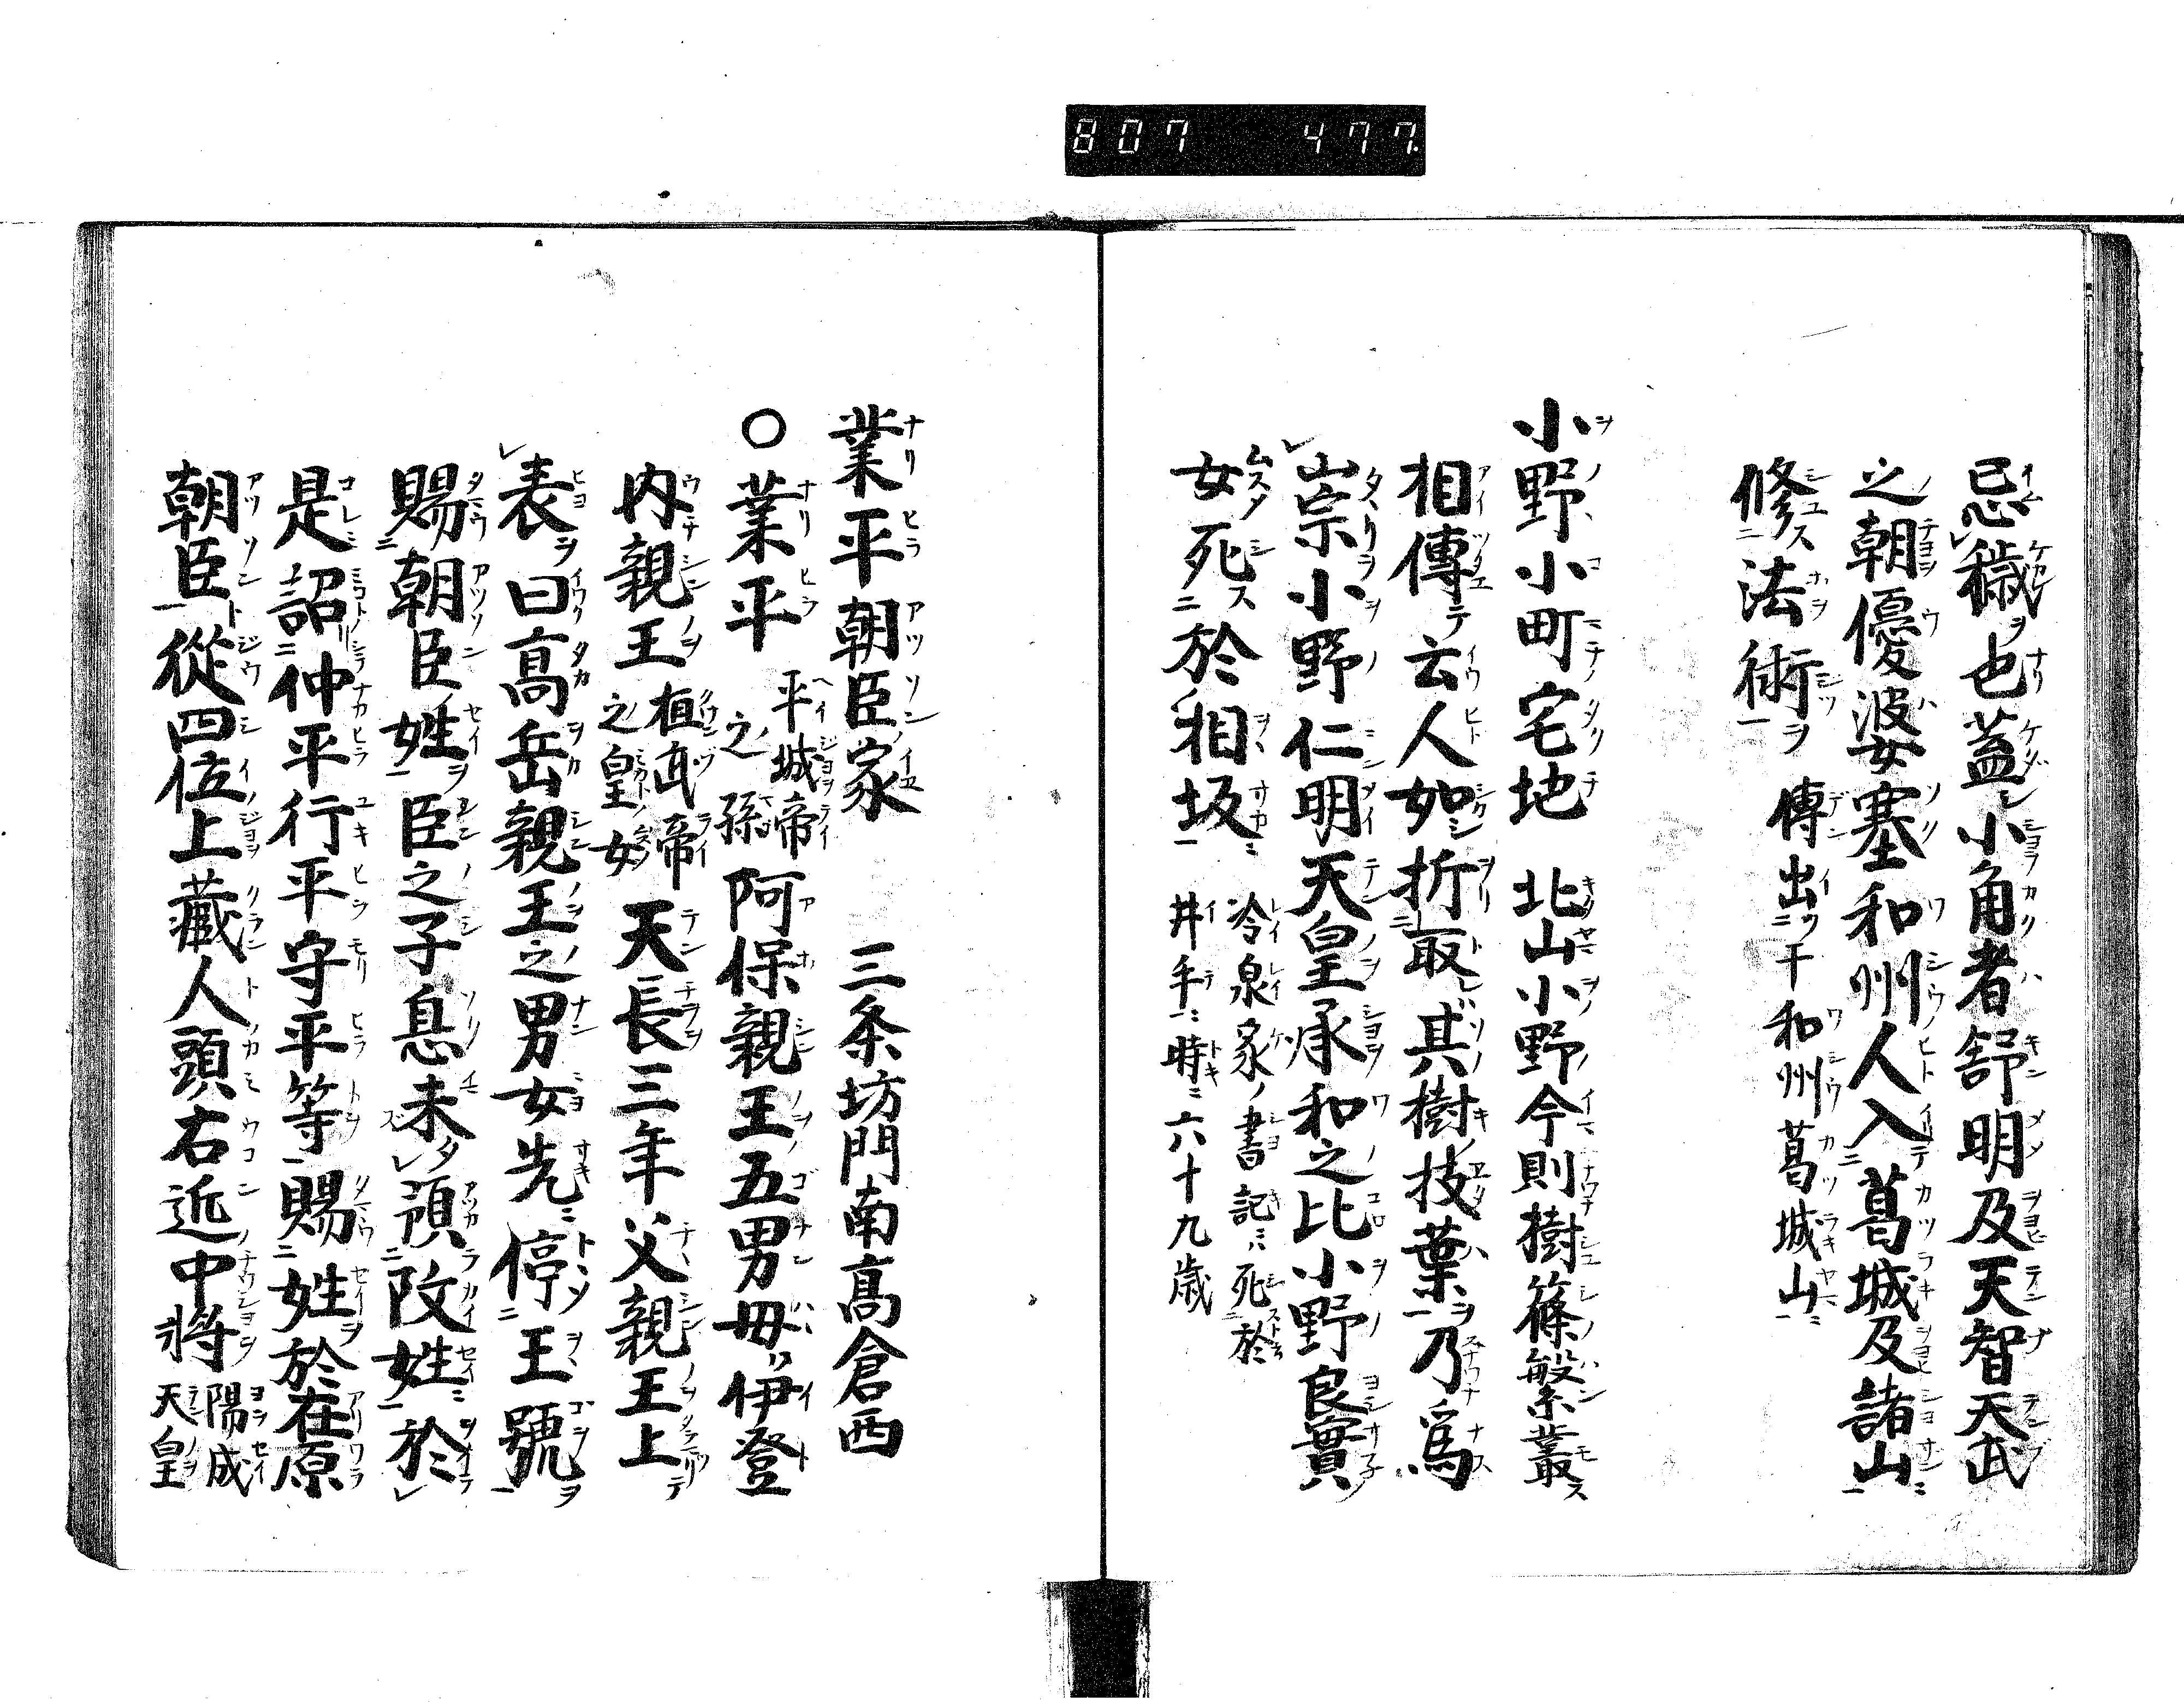 807 477.
忌穢也蓋小角者舒明及天智天武
之朝優婆塞和州人入葛城及諸山
修法術 傳出于和州葛城山
小野小町宅地 北山小野今則樹篠繁叢
相傳云人如折取其樹枝葉乃為
崇小野仁明天皇承和之比小野良實
女死於相坂 冷泉家ノ書記ニ死於
井手時ニ六十九歳
業平朝臣家 三条坊門南高倉西
〇業平 平城帝之孫 阿保親王五男母伊登
内親王 桓武帝之皇女 天長三年父親王上
表曰高岳親王之男女先停王號
賜朝臣姓臣之子息未預改姓於
是詔仲平行平守平等賜姓於在原
朝臣從四位上藏人頭右近中将 陽成
天皇